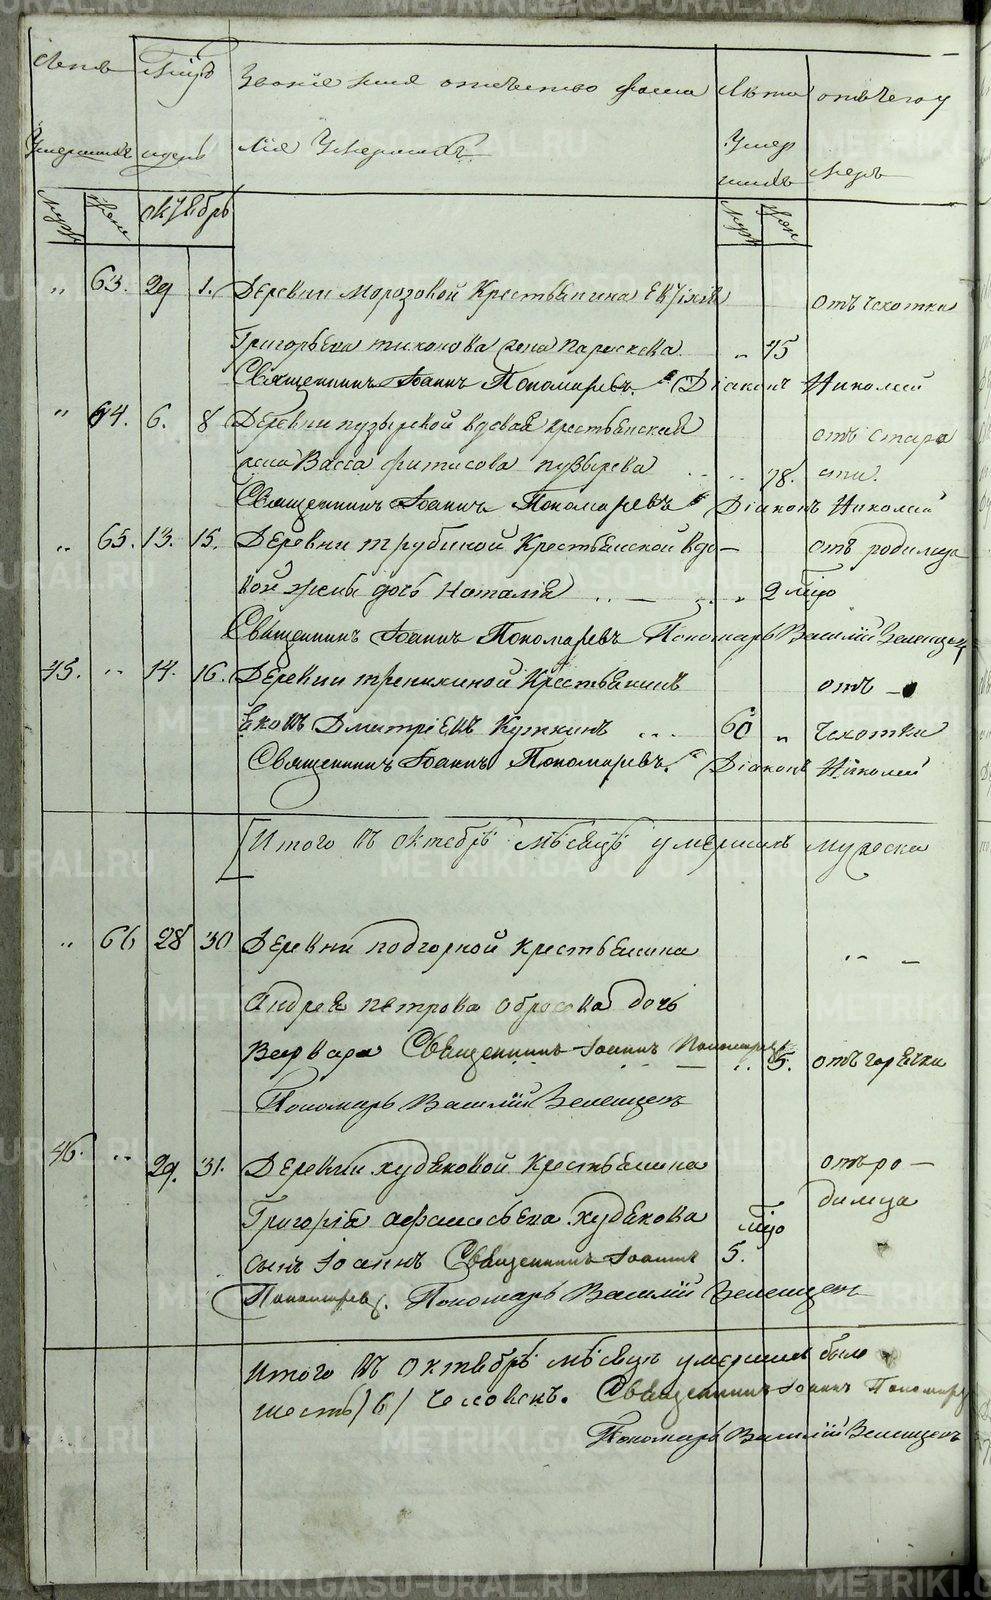 Звание имя отчество фами Лета отъ чего у
Умершихъ лія Умершихъ Умер меръ
шихъ
муж жен октябрь муж жен
" 63. 29 1. Деревни Морозовой Крестьянина Евфимія отъ чехотки
Григорьева тихонова жена Параскева " 45
Священникъ Іоаннъ Пономаревъ. Діаконъ Николай
" 64. 6. 8 Деревни пузыревой вдовая крестьянская отъ старо
жена Васса пузырева " 78. сти.
Священникъ Іоаннъ Пономаревъ Діаконъ Николай
" 65. 13. 15. Деревни трубиной Крестьянской вдо- отъ родимца
вой жены дочь Наталія " 2
Священникъ Іоаннъ Пономаревъ Пономарь Василій
45. " 14. 16. Деревни Крестьянинъ отъ -
Дмитріевъ 60 " чехотки
Священникъ Іоаннъ Пономаревъ. Діаконъ Николай
Итого въ октябрѣ мѣсяцѣ умершихъ мужеска
" 66 28 30 Деревни подгорной крестьянина " -
Андрея петрова дочь
Варвара Священникъ Іоаннъ Пономаревъ " 5. отъ горячки
Пономарь Василій
46. " 29. 31. Деревни худяковой крестьянина отъ ро-
Григорія афанасьева худякова димца
сынъ Іоаннъ Священникъ Іоаннъ 5.
Пономаревъ. Пономарь Василій
Итого въ октябрѣ мѣсяцѣ умершихъ было
шесть /6/ человекъ. Священникъ Іоаннъ Пономаревъ
Пономарь Василій
METRIKI.GASO-URAL.RU